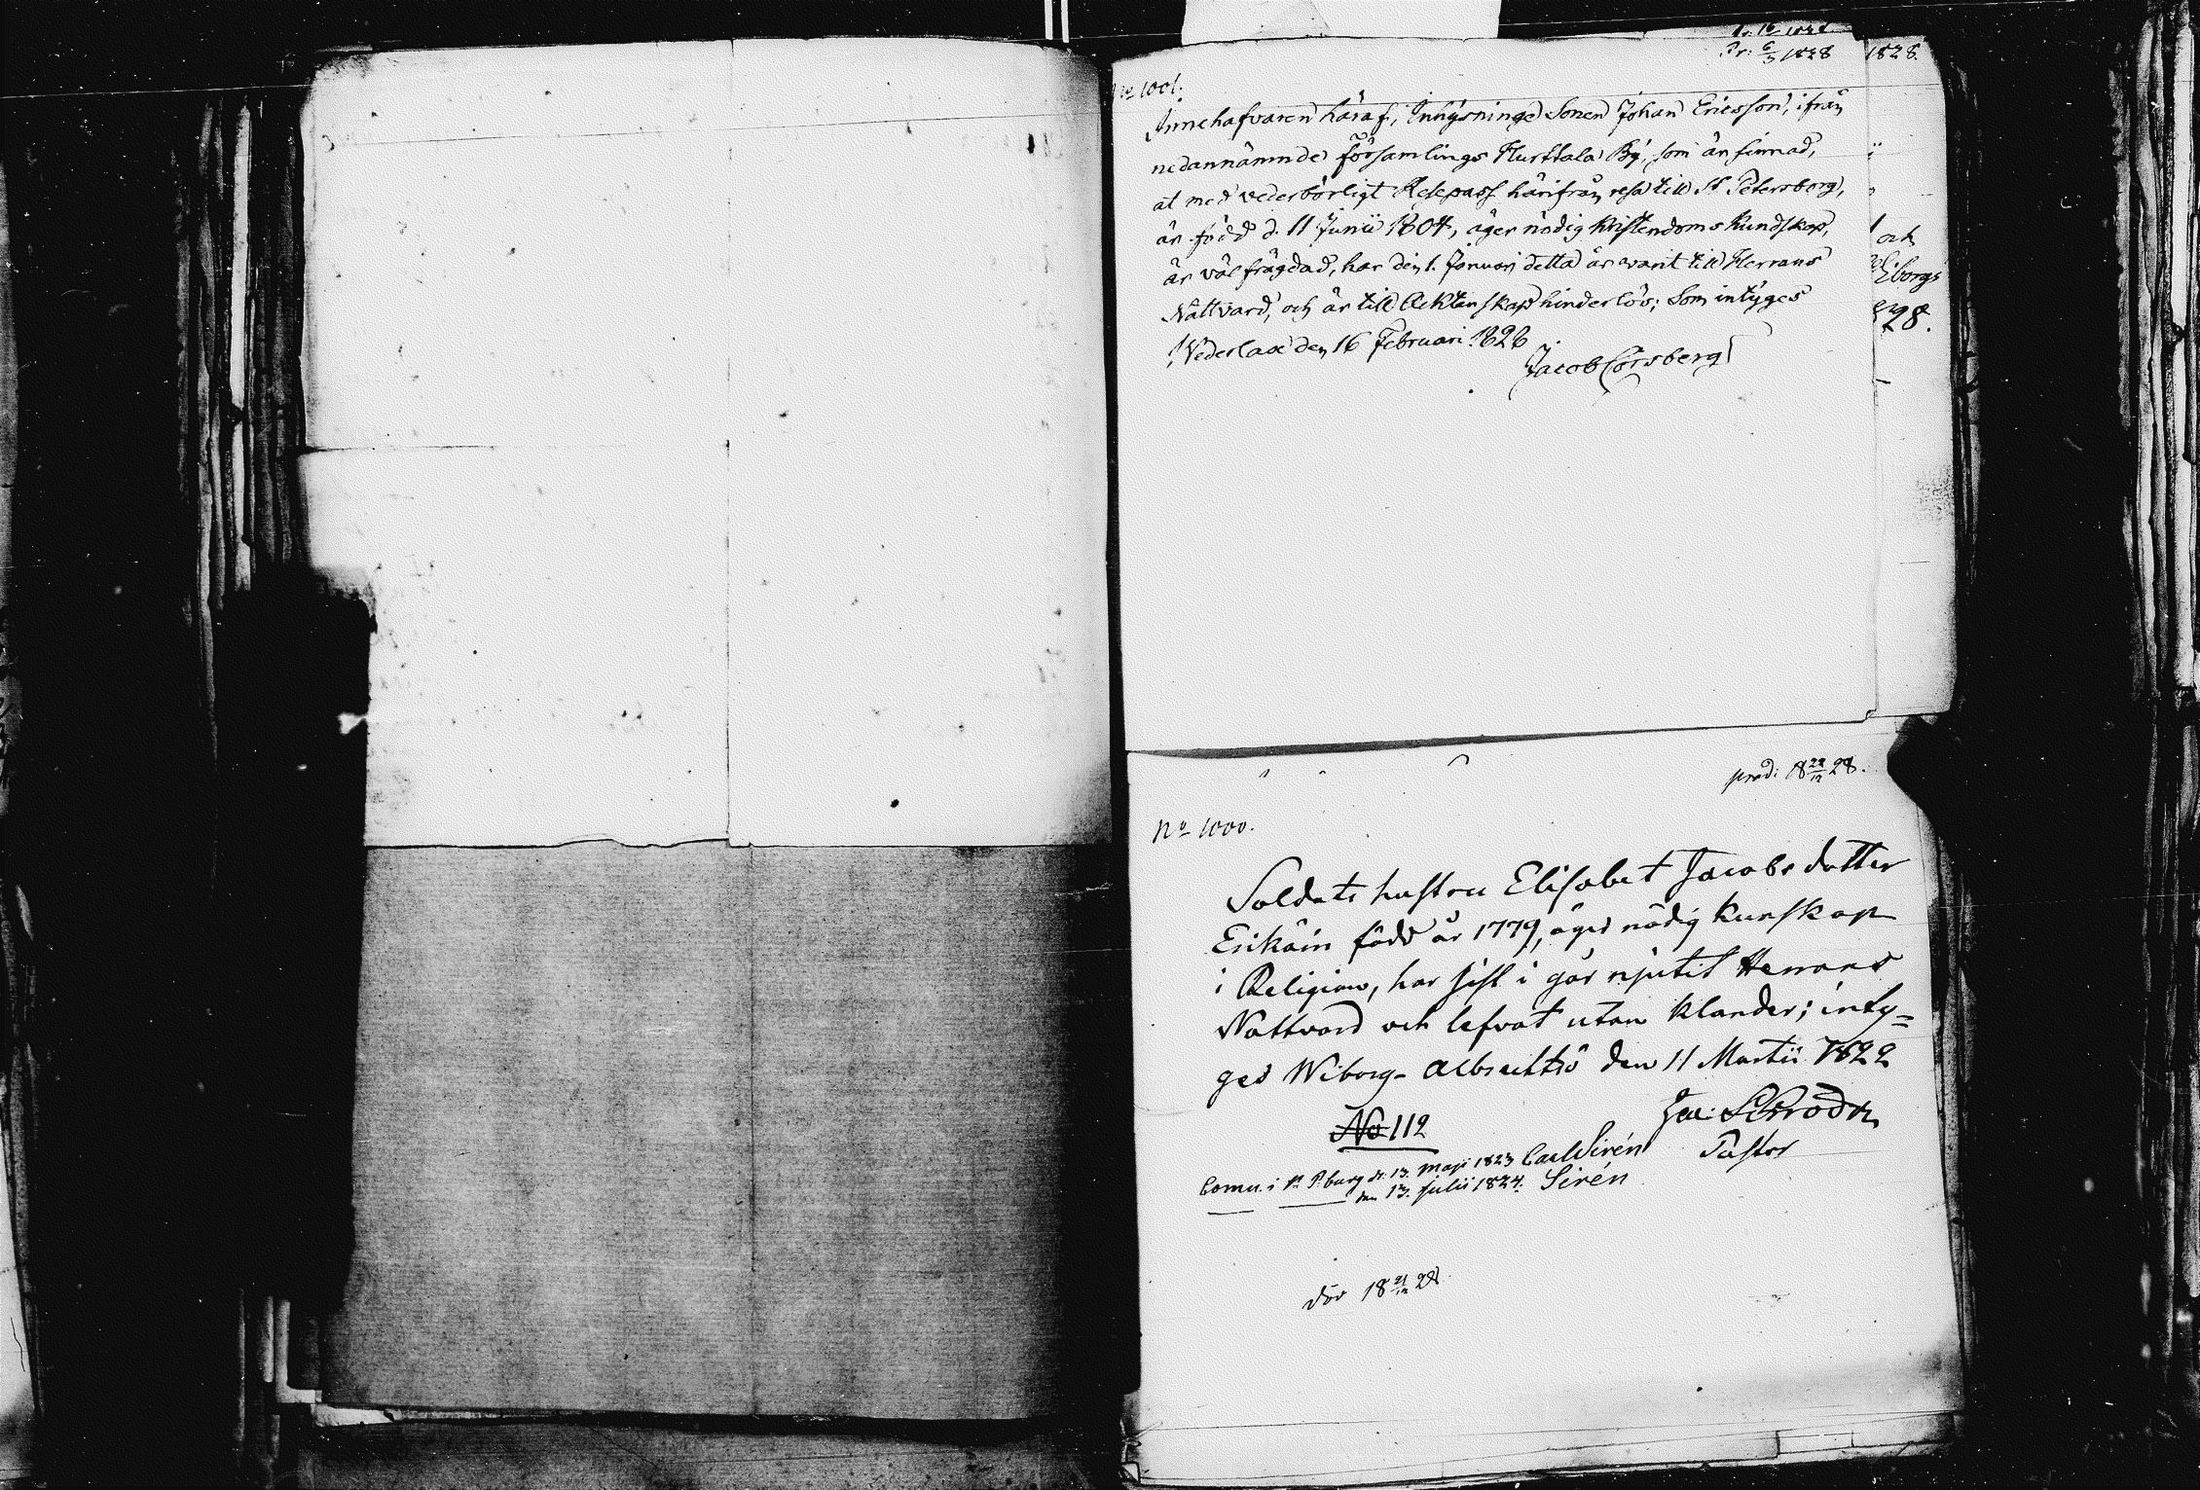 Pr: 6/3 1828
1828.
No 1001.
Innehafvaren häraf, Inhysninge Sonen Johan Ericsson, ifrån
nedannämnde Församlings Hurttala By, som är sinnad,
at med vederbörligt Respass härifrån resa till St Petersborg,
är född d. 11 Junii 1804, äger nödig Kristendoms Kundskap,
är väl frägdad, har den 1. Januari detta år warit till Herrans
Nattvard, och är till Ecktenskap hinderlös; Som intyges
Wederlax den 16 Februari 1828
Jacob Corsberg
och
Eiborgs
28.
prod: 18 22/12 28.
No 1000.
Soldats hustru Elisabet Jacobs dotter
Erikäin född år 1779, äger nödig kunskap
i Religion, har sist i går njutit Herrans
Nattvard och lefvat utan klander; inty=
ges Wiborg- Albrechtsö den 11 Martii 1822
Jac: Schroder
Pastor
No 112
Comu. i St P.burg d. 13. Maji 1823 Carl Sirén
den 13. Julii 1824. Sirén
död 18 21/12 28